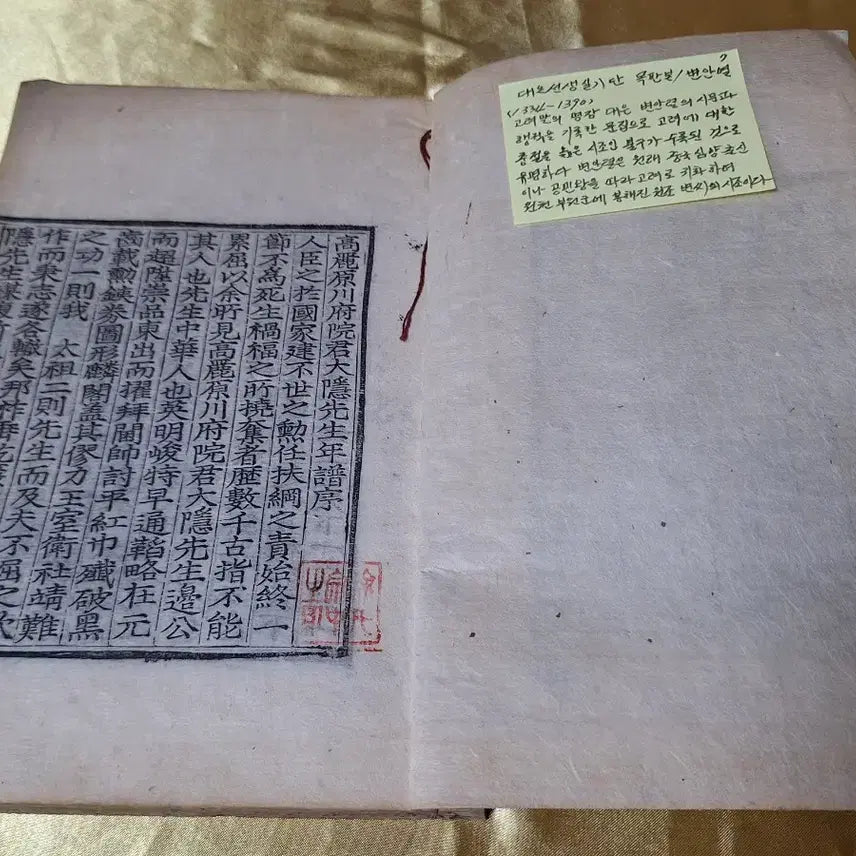 대은선생실기 단 목판본/변안열
(1334-1390)
고려말의 명장 대은 변안렬의 시문과
행적을 기록한 문집으로 고려에 대한
충절을 읊은 시조인 불구가 수록된 것으로
유명하다 변안렬은 원래 중국 심양 출신
이나 공민왕을 따라 고려로 귀화하여
원천 부원군에 봉해진 원조 변씨의 시조이다
高麗原川府院君大隱先生年譜序
人臣之於國家建不世之勳任扶綱之責始終一
節不爲死生禍福之所撓奪者歷數千古指不能
累屈以余所見高麗原川府院君大隱先生邊公
其人也先生中華人也英明峻特早通韜略在元
而超陞崇品東出而擢拜閫帥討平紅巾殲破黑
齒載勳鐵券圖形麟閣盖其僇力王室衛社靖難
之功一則我 太祖二則先生而及夫不屈之
作而秉志遂各轍矣那
隱先生